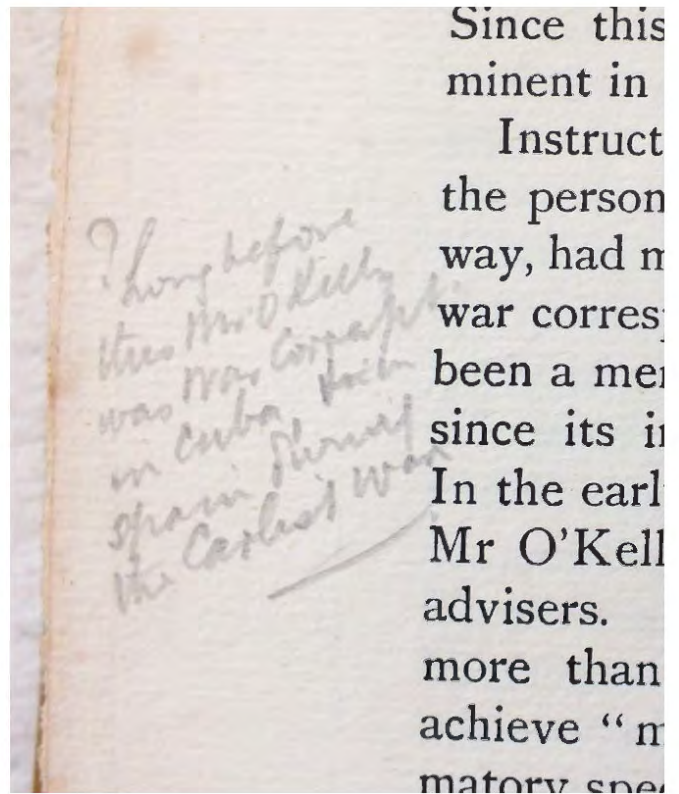 ? Long before
this Mr O'Kelly
was War Correspt.
in Cuba
Spain during
the Carlist War
Since this
minent in
Instruct
the person
way, had m
war corres
been a me
since its i
In the earl
Mr O’Kell
advisers.
more than
achieve “m
matory spe